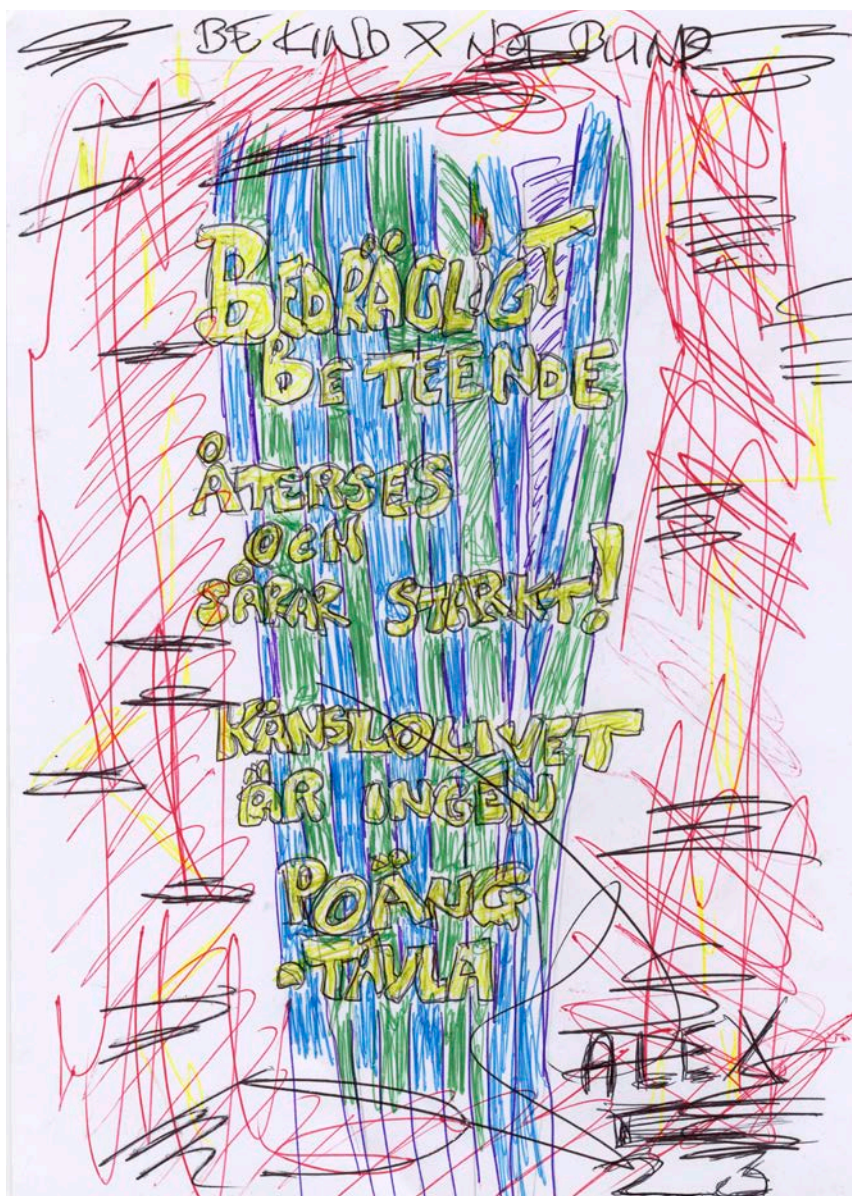 BE KIND & NOT BLIND
BEDRÄGLIGT
BETEENDE
ÅTERSES
OCH
SÅRAR STARKT!
KÄNSLOLIVET
ÄR INGEN
POÄNG
-TAVLA
ALEX